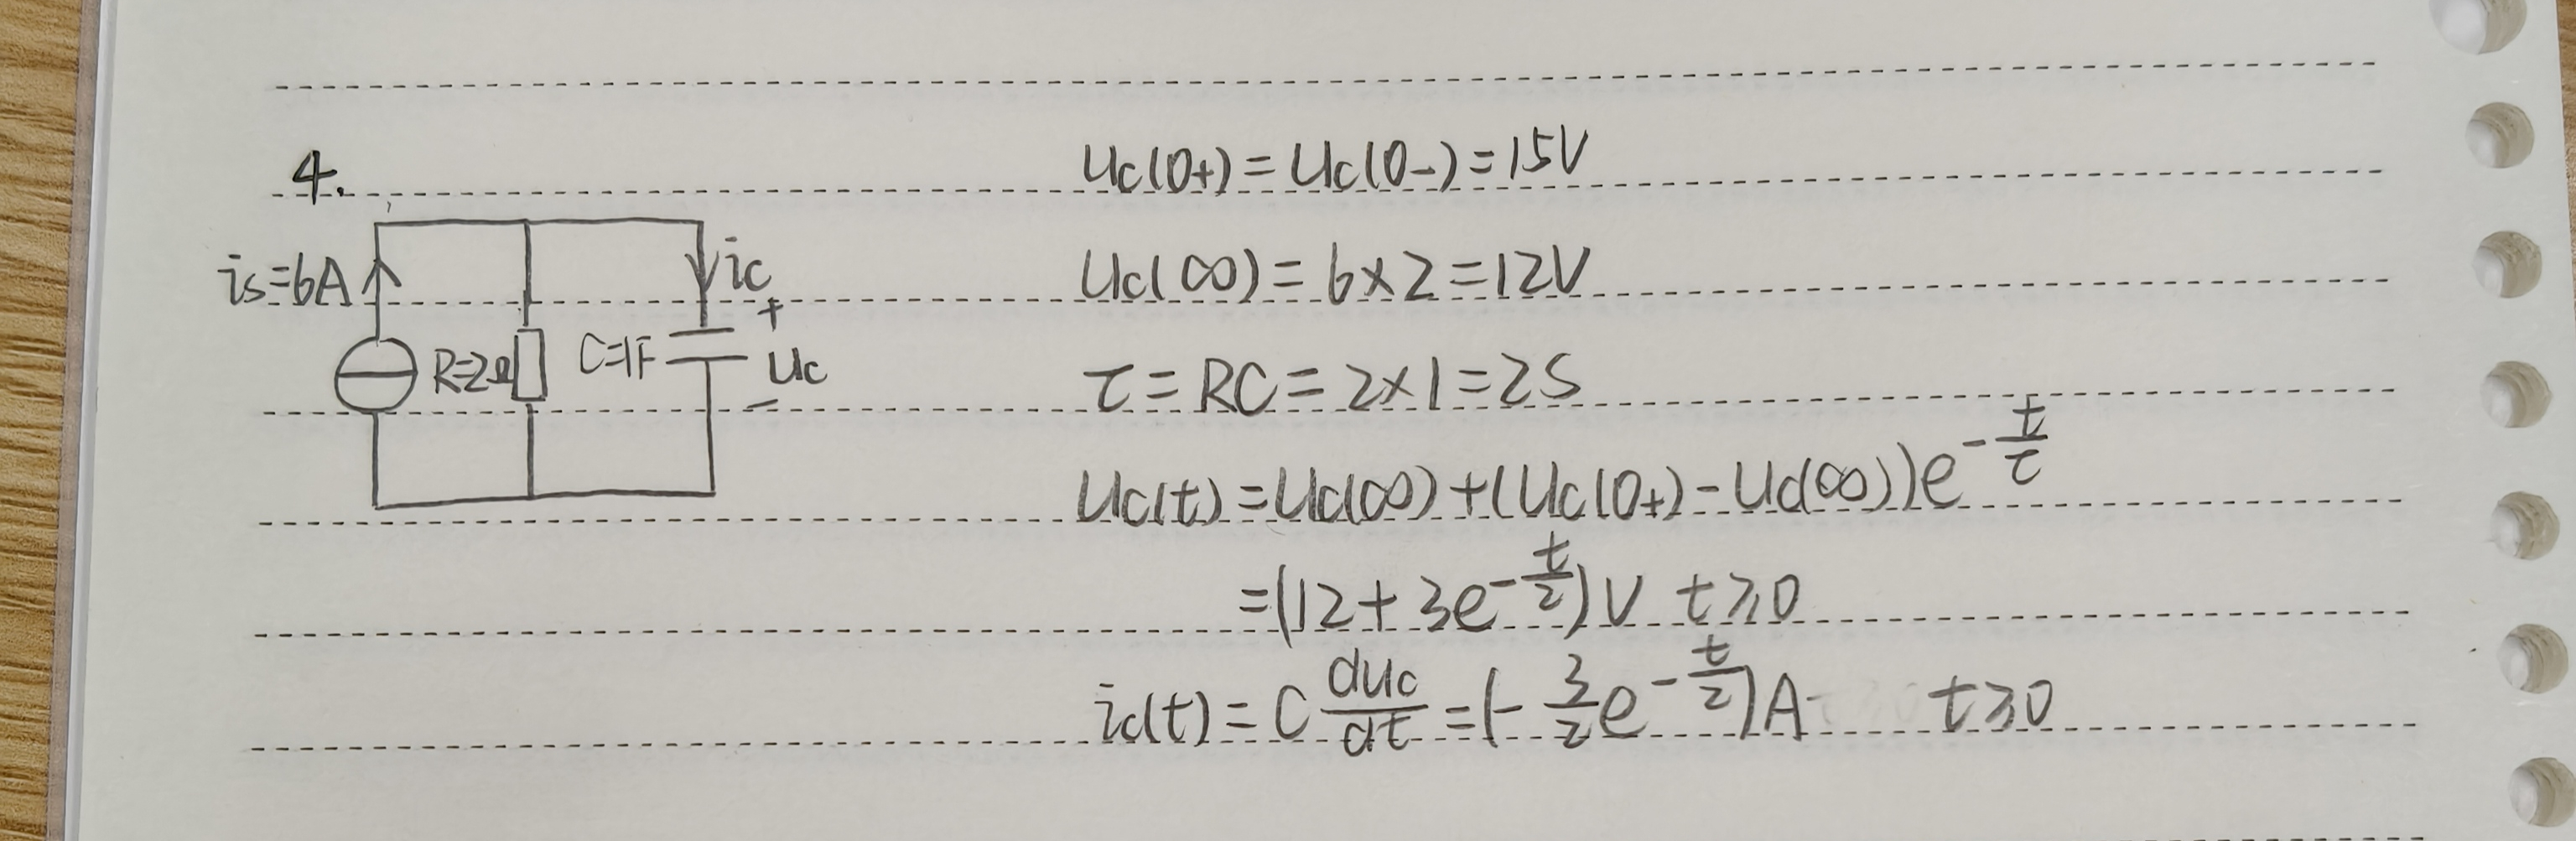 4.
is=6A
R=2Ω
C=1F
ic
+
uc
−
uc(0+)=uc(0-)=15V
uc(∞)=6×2=12V
τ=RC=2×1=2S
uc(t)=uc(∞)+(uc(0+)-uc(∞))e^{-\frac{t}{τ}}
=(12+3e^{-\frac{t}{2}})V t≥0
ic(t)=C\frac{duc}{dt}=(-\frac{3}{2}e^{-\frac{t}{2}})A t≥0